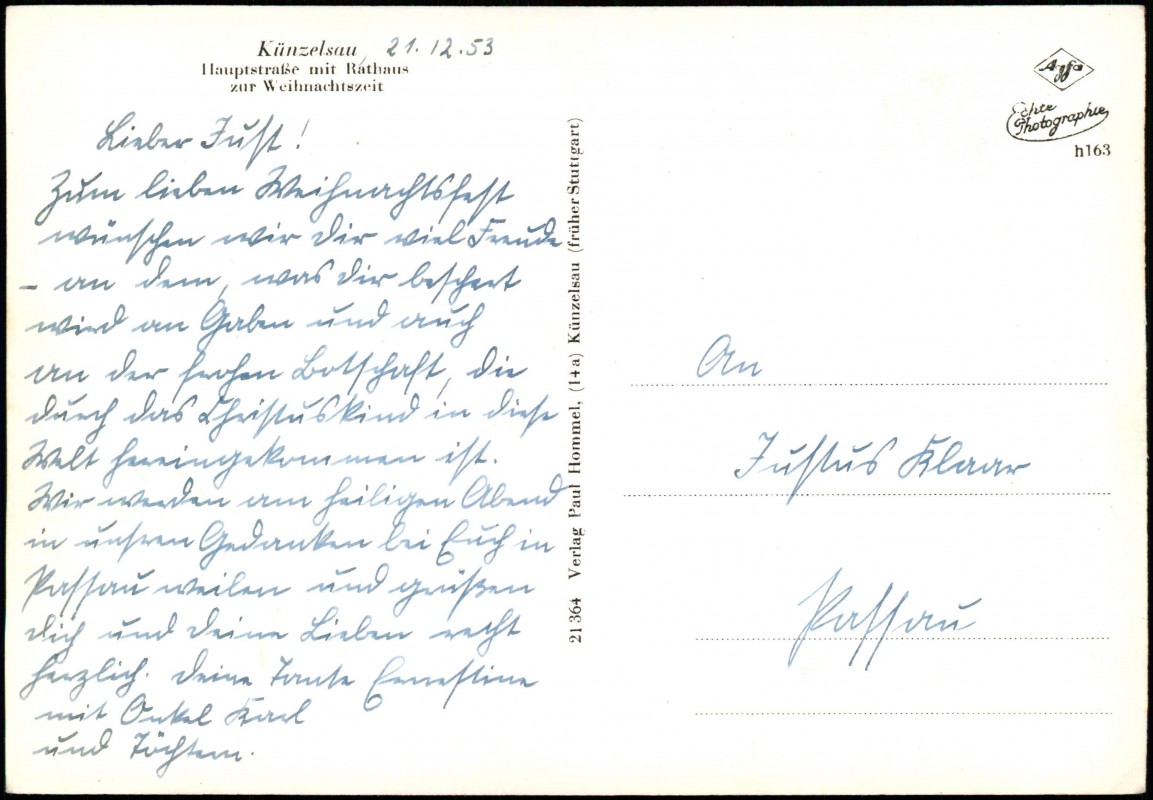 Künzelsau, 21.12.53
Hauptstraße mit Rathaus
zur Weihnachtszeit
Lieber Just!
Zum lieben Weihnachtsfest
wünschen wir Dir viel Freude
– an dem, was Dir beschert
wird an Gaben und auch
an der frohen Botschaft, die
durch das Christuskind in diese
Welt hereingekommen ist.
Wir werden am heiligen Abend
in unsren Gedanken bei Euch in
Passau weilen und grüßen
Dich und Deine Lieben recht
herzlich. Deine Tante Ernestine
mit Onkel Karl
und Töchtern.
21 364 Verlag Paul Hommel, (14a) Künzelsau (früher Stuttgart)
Agfa
Echte
Photographie
h163
An
Justus Klaar
Passau